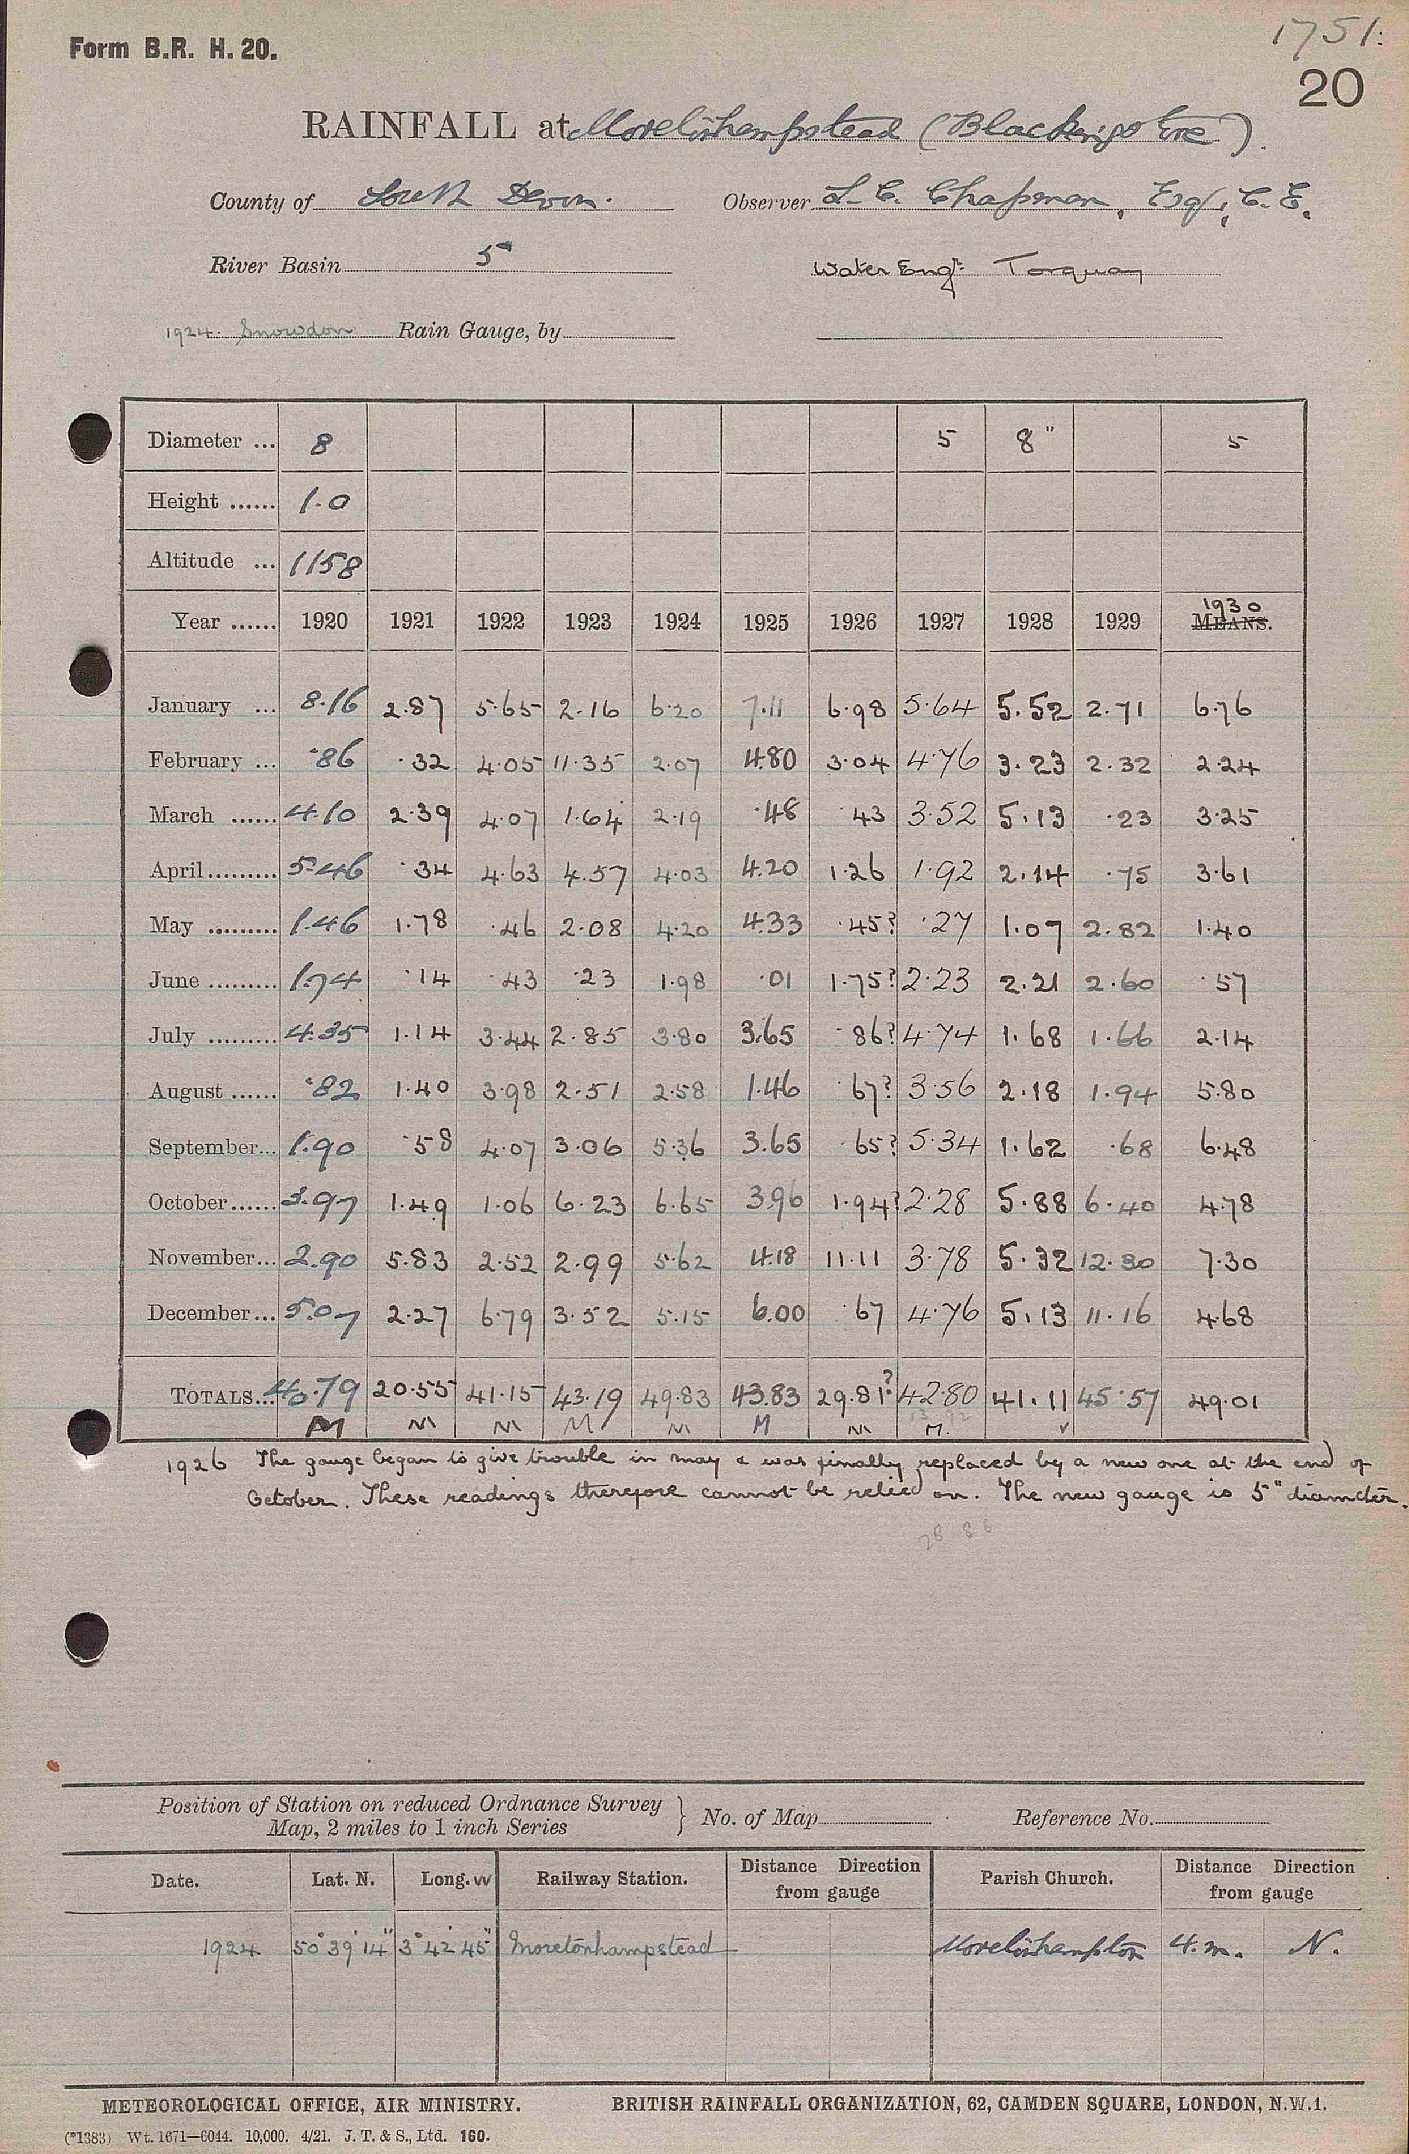 Form B.R. H. 20.
1751.
20
RAINFALL at Moretonhampstead (Blackingstone).
County of South Devon. Observer S. C. Chapman, Esq., C. E.
River Basin 5 Water Engr. Torquay
1924. Snowdon Rain Gauge, by
Diameter ... 8 5 8" 5
Height ...... 1.0
Altitude ... 1158
Year ...... 1920 1921 1922 1923 1924 1925 1926 1927 1928 1929 1930 MEANS.
January ... 8.16 2.87 5.65 2.16 6.20 7.11 6.98 5.64 5.52 2.71 6.76
February ... .86 .32 4.05 11.35 2.07 4.80 3.04 4.76 3.23 2.32 2.24
March ...... 4.10 2.39 4.07 1.64 2.19 .48 .43 3.52 5.13 .23 3.25
April......... 5.46 .34 4.63 4.57 4.03 4.20 1.26 1.92 2.14 .75 3.61
May ......... 1.46 1.78 .46 2.08 4.20 4.33 .45? .27 1.07 2.82 1.40
June ......... 1.74 .14 .43 .23 1.98 .01 1.75? 2.23 2.21 2.60 .57
July ......... 4.35 1.14 3.44 2.85 3.80 3.65 .86? 4.74 1.68 1.66 2.14
August ...... .82 1.40 3.98 2.51 2.58 1.46 .67? 3.56 2.18 1.94 5.80
September... 1.90 .58 4.07 3.06 5.36 3.65 .65? 5.34 1.62 .68 6.48
October...... 3.97 1.49 1.06 6.23 6.65 3.96 1.94? 2.28 5.88 6.40 4.78
November... 2.90 5.83 2.52 2.99 5.62 4.18 11.11 3.78 5.32 12.30 7.30
December... 5.07 2.27 6.79 3.52 5.15 6.00 .67 4.76 5.13 11.16 4.68
TOTALS... 40.79 20.55 41.15 43.19 49.83 43.83 29.81? 42.80 41.11 45.57 49.01
M M M M M M M M. ✓
1926 The gauge began to give trouble in may & was finally replaced by a new one at the end of
October. These readings therefore cannot be relied on. The new gauge is 5" diameter.
28 88
Position of Station on reduced Ordnance Survey
Map, 2 miles to 1 inch Series } No. of Map Reference No.
Date. Lat. N. Long. W Railway Station. Distance Direction from gauge Parish Church. Distance Direction from gauge
1924. 50° 39' 14" 3° 42' 45" Moretonhampstead Moretonhampton 4. m. N.
METEOROLOGICAL OFFICE, AIR MINISTRY. BRITISH RAINFALL ORGANIZATION, 62, CAMDEN SQUARE, LONDON, N.W.1.
(*1383) Wt. 1671—6044. 10,000. 4/21. J. T. & S., Ltd. 160.